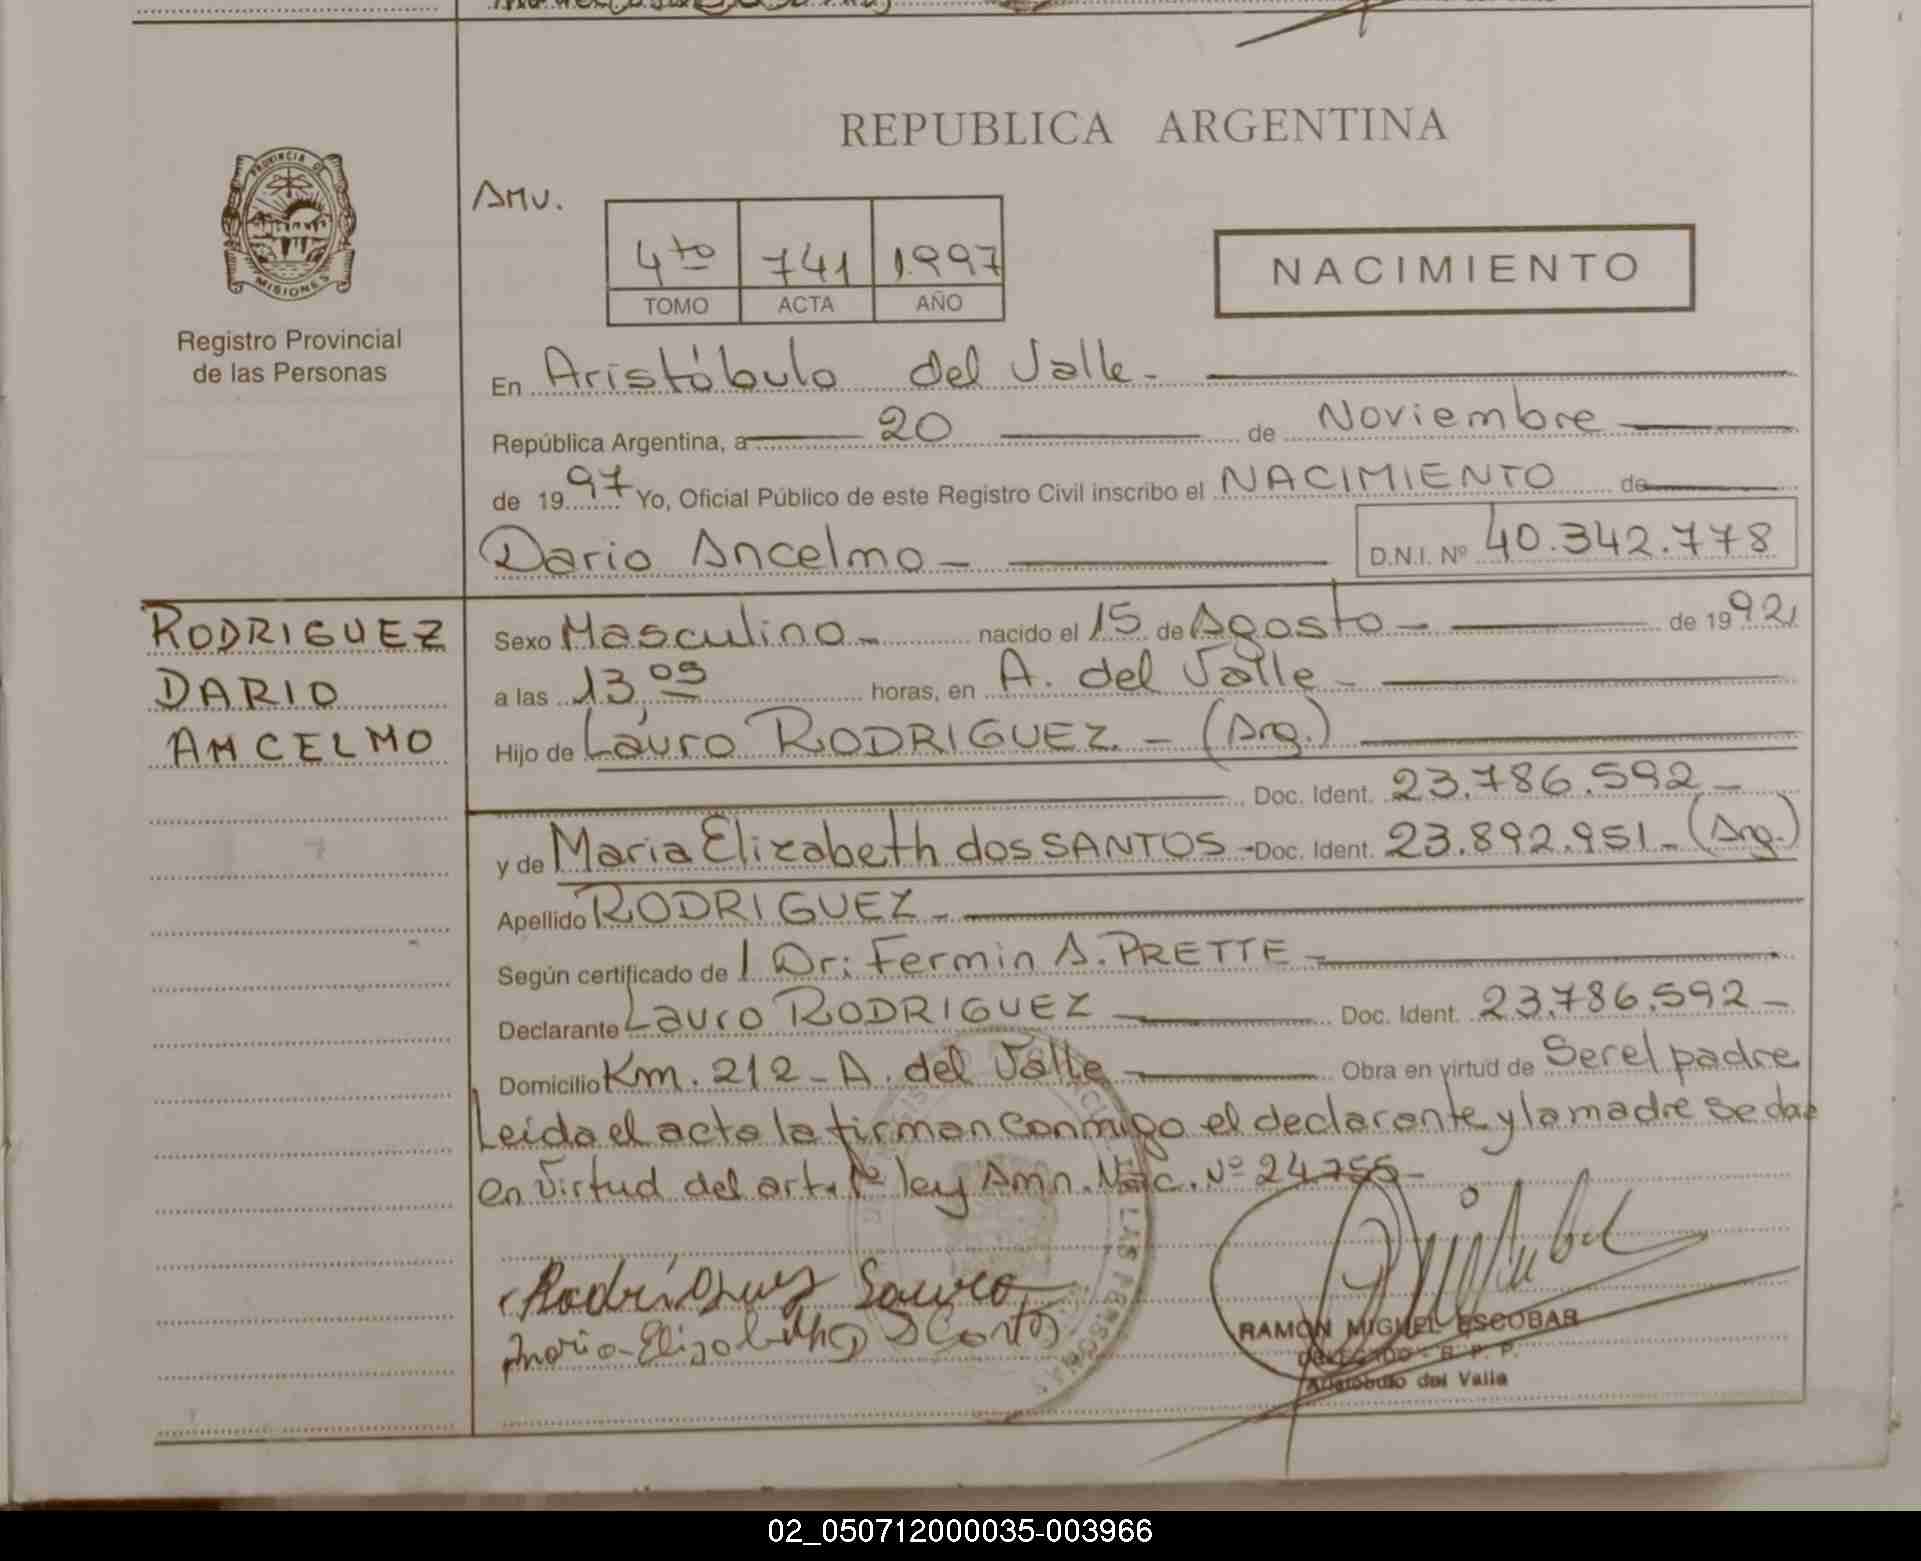 REPUBLICA ARGENTINA
PROVINCIA DE
MISIONES
Registro Provincial
de las Personas
AMV.
4to 741 1997
TOMO ACTA AÑO
NACIMIENTO
En Aristóbulo del Valle -
República Argentina, a 20 de Noviembre
de 1997 Yo, Oficial Público de este Registro Civil inscribo el NACIMIENTO de
Dario Ancelmo - D.N.I. Nº 40.342.778
RODRIGUEZ
DARIO
ANCELMO
Sexo Masculino - nacido el 15 de Agosto - de 1992
a las 13,05 horas, en A. del Valle -
Hijo de Lauro RODRIGUEZ. - (Arg.)
Doc. Ident. 23.786.592 -
y de Maria Elizabeth dos SANTOS - Doc. Ident. 23.892.951 - (Arg.)
Apellido RODRIGUEZ -
Según certificado de / Dr: Fermin A. PRETTE -
Declarante Lauro RODRIGUEZ Doc. Ident. 23.786.592 -
Domicilio Km. 212 - A. del Valle Obra en virtud de Ser el padre
Leida el acta la firman conmigo el declarante y la madre se da
en virtud del art. 1º ley Amn. Nac. Nº 24755 -
Rodriguez Lauro
Maria Elizabeth D Santos
RAMON MIGUEL ESCOBAR
DELEGADO - R. P. P.
Aristobulo del Valle
02_050712000035-003966